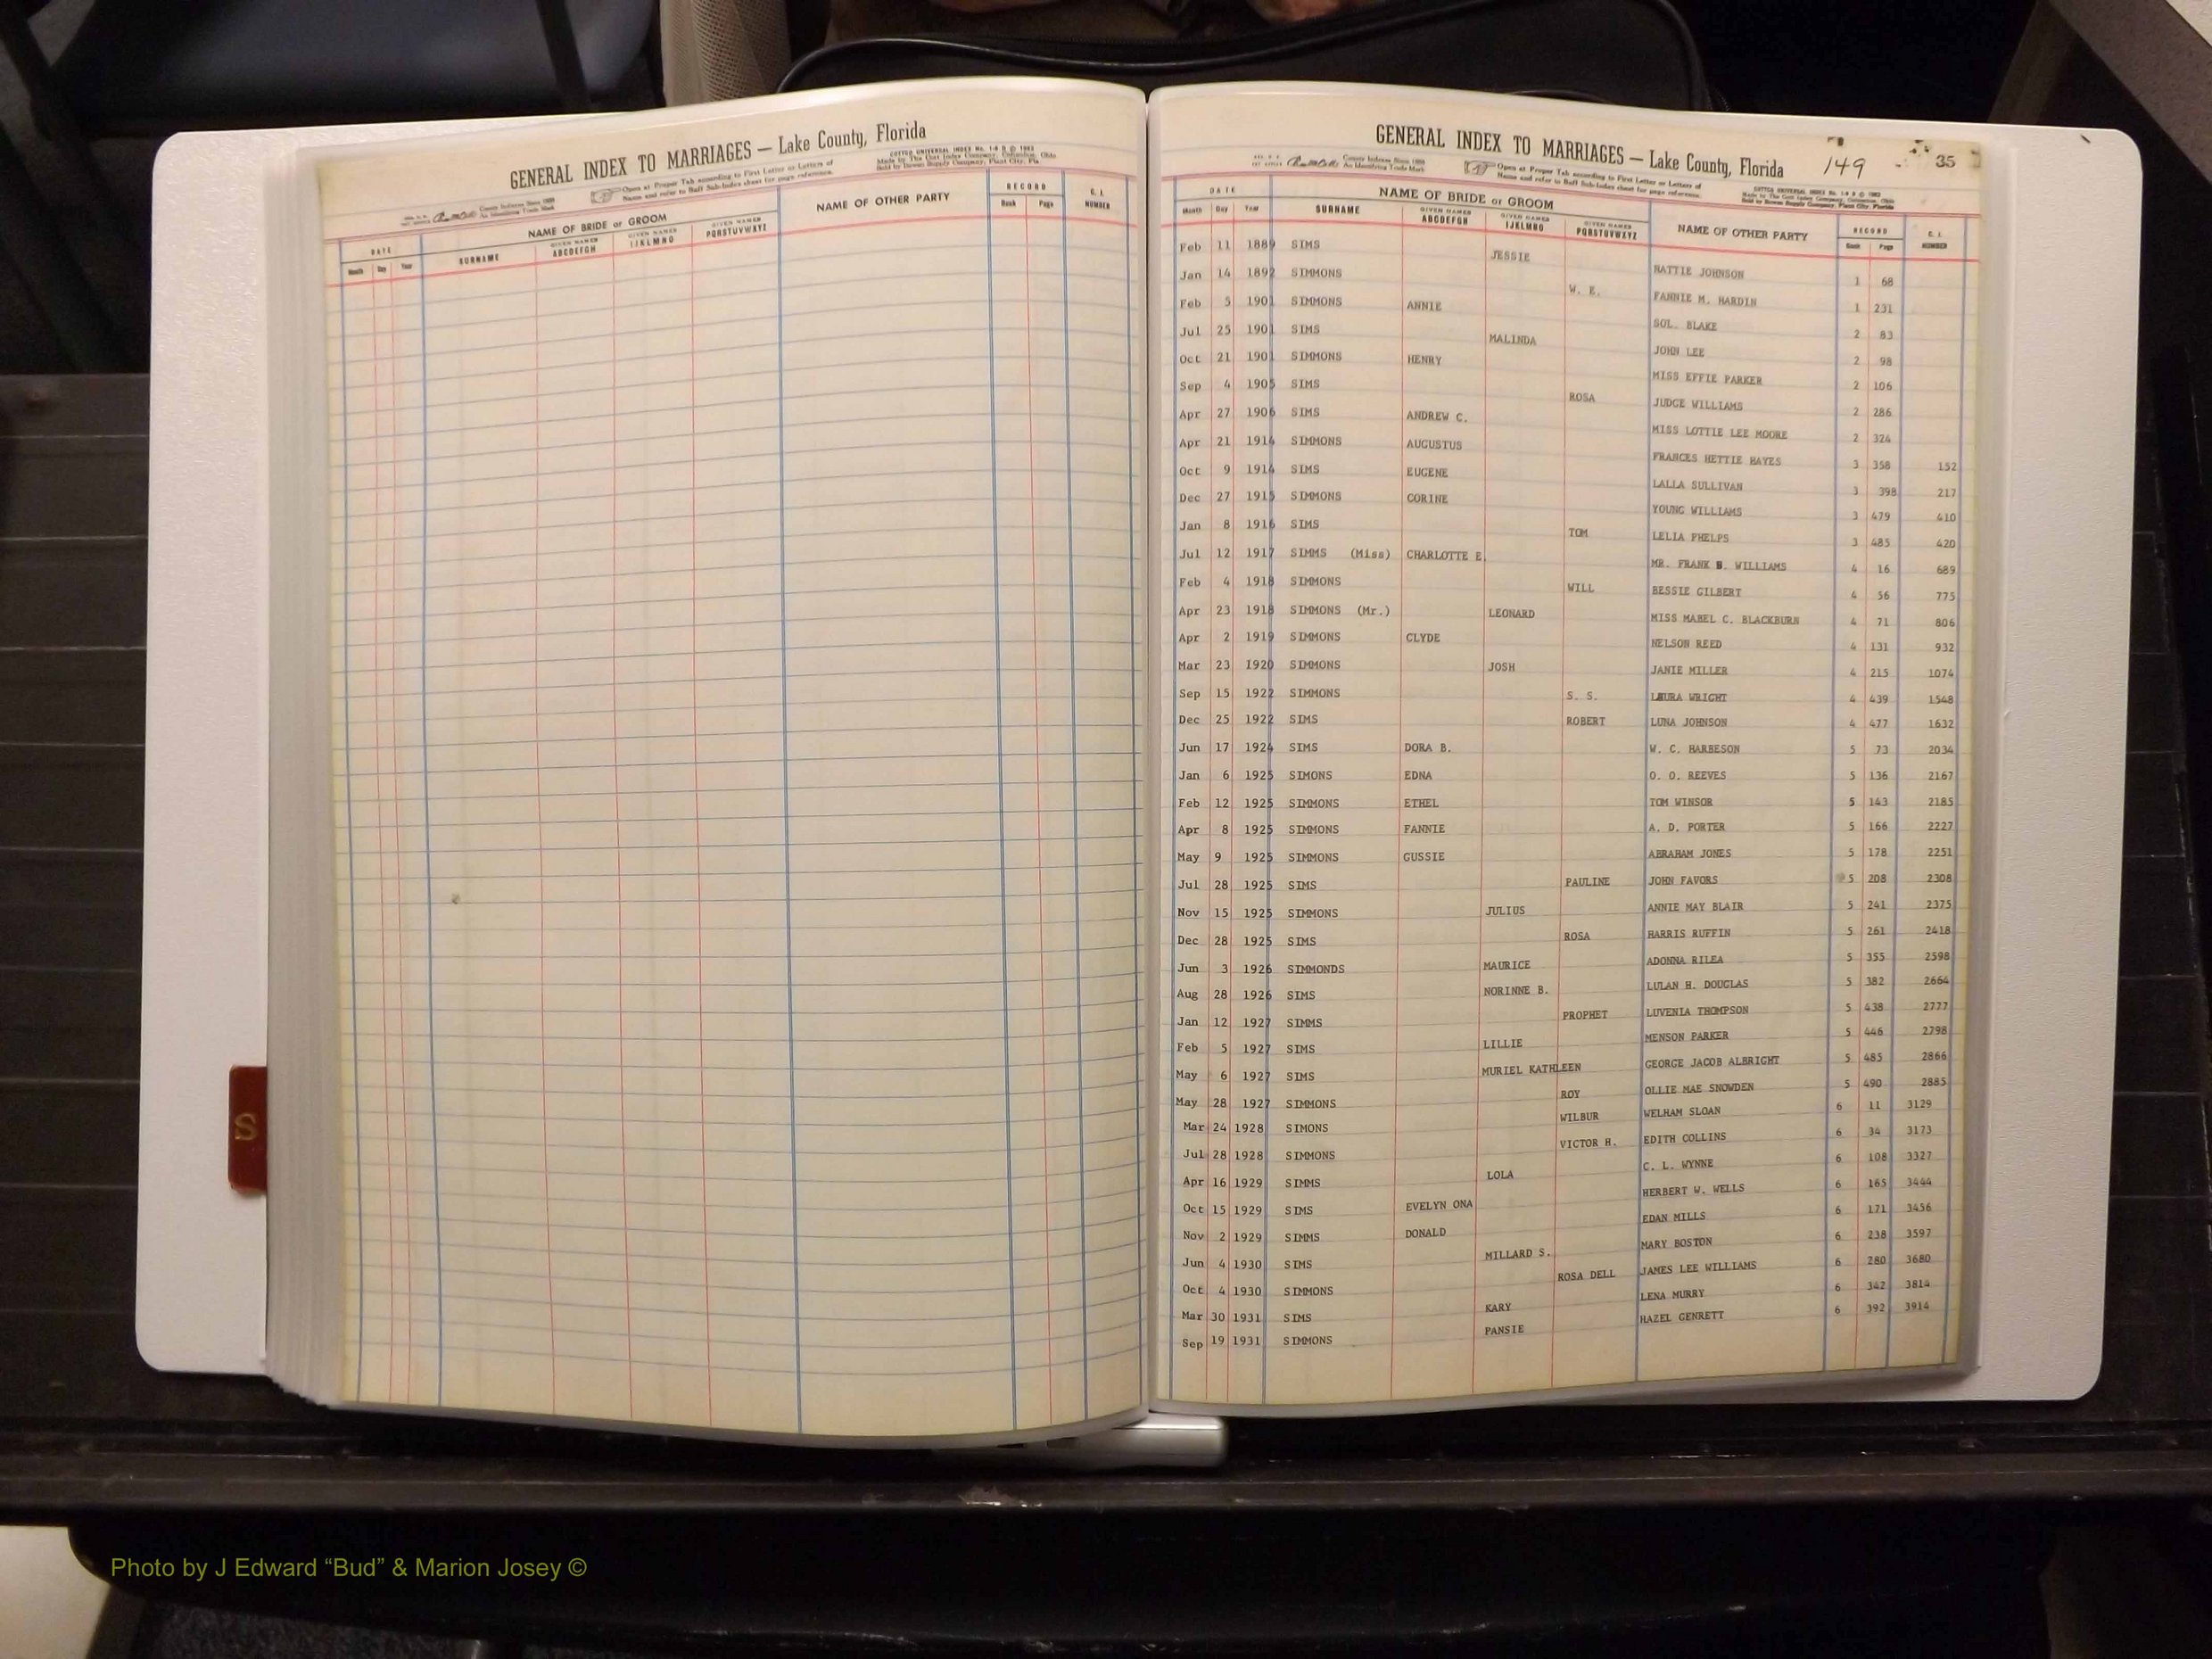 GENERAL INDEX TO MARRIAGES — Lake County, Florida
County Indexes Since 1888
An Identifying Trade Mark
Open at Proper Tab according to First Letter or Letters of
Name and refer to Buff Sub-Index sheet for page reference.
COTTCO UNIVERSAL INDEX No. 1-8 B © 1963
Made by The Cott Index Company, Columbus, Ohio
Sold by Bowen Supply Company, Plant City, Fla.
DATE NAME OF BRIDE or GROOM NAME OF OTHER PARTY RECORD C. I. NUMBER
Month Day Year SURNAME GIVEN NAMES ABCDEFGH GIVEN NAMES IJKLMNO GIVEN NAMES PQRSTUVWXYZ Book Page
S
GENERAL INDEX TO MARRIAGES — Lake County, Florida 149 35
County Indexes Since 1888
An Identifying Trade Mark
Open at Proper Tab according to First Letter or Letters of
Name and refer to Buff Sub-Index sheet for page reference.
COTTCO UNIVERSAL INDEX No. 1-8 B © 1963
Made by The Cott Index Company, Columbus, Ohio
Sold by Bowen Supply Company, Plant City, Florida
DATE NAME OF BRIDE or GROOM NAME OF OTHER PARTY RECORD C. I. NUMBER
Month Day Year SURNAME GIVEN NAMES ABCDEFGH GIVEN NAMES IJKLMNO GIVEN NAMES PQRSTUVWXYZ Book Page
Feb 11 1889 SIMS JESSIE HATTIE JOHNSON 1 68
Jan 14 1892 SIMMONS W. E. FANNIE M. HARDIN 1 231
Feb 5 1901 SIMMONS ANNIE SOL. BLAKE 2 83
Jul 25 1901 SIMS MALINDA JOHN LEE 2 98
Oct 21 1901 SIMMONS HENRY MISS EFFIE PARKER 2 106
Sep 4 1905 SIMS ROSA JUDGE WILLIAMS 2 286
Apr 27 1906 SIMS ANDREW C. MISS LOTTIE LEE MOORE 2 324
Apr 21 1914 SIMMONS AUGUSTUS FRANCES HETTIE HAYES 3 358 152
Oct 9 1914 SIMS EUGENE LALLA SULLIVAN 3 398 217
Dec 27 1915 SIMMONS CORINE YOUNG WILLIAMS 3 479 410
Jan 8 1916 SIMS TOM LELIA PHELPS 3 485 420
Jul 12 1917 SIMMS (Miss) CHARLOTTE E. MR. FRANK B. WILLIAMS 4 16 689
Feb 4 1918 SIMMONS WILL BESSIE GILBERT 4 56 775
Apr 23 1918 SIMMONS (Mr.) LEONARD MISS MABEL C. BLACKBURN 4 71 806
Apr 2 1919 SIMMONS CLYDE NELSON REED 4 131 932
Mar 23 1920 SIMMONS JOSH JANIE MILLER 4 215 1074
Sep 15 1922 SIMMONS S. S. LAURA WRIGHT 4 439 1548
Dec 25 1922 SIMS ROBERT LUNA JOHNSON 4 477 1632
Jun 17 1924 SIMS DORA B. W. C. HARBESON 5 73 2034
Jan 6 1925 SIMONS EDNA O. O. REEVES 5 136 2167
Feb 12 1925 SIMMONS ETHEL TOM WINSOR 5 143 2185
Apr 8 1925 SIMMONS FANNIE A. D. PORTER 5 166 2227
May 9 1925 SIMMONS GUSSIE ABRAHAM JONES 5 178 2251
Jul 28 1925 SIMS PAULINE JOHN FAVORS 5 208 2308
Nov 15 1925 SIMMONS JULIUS ANNIE MAY BLAIR 5 241 2375
Dec 28 1925 SIMS ROSA HARRIS RUFFIN 5 261 2418
Jun 3 1926 SIMMONDS MAURICE ADONNA RILEA 5 355 2598
Aug 28 1926 SIMS NORINNE B. LULAN H. DOUGLAS 5 382 2664
Jan 12 1927 SIMMS PROPHET LUVENIA THOMPSON 5 438 2777
Feb 5 1927 SIMS LILLIE MENSON PARKER 5 446 2798
May 6 1927 SIMS MURIEL KATHLEEN GEORGE JACOB ALBRIGHT 5 485 2866
May 28 1927 SIMMONS ROY OLLIE MAE SNOWDEN 5 490 2885
Mar 24 1928 SIMONS WILBUR WELHAM SLOAN 6 11 3129
Jul 28 1928 SIMMONS VICTOR H. EDITH COLLINS 6 34 3173
Apr 16 1929 SIMMS LOLA C. L. WYNNE 6 108 3327
Oct 15 1929 SIMS EVELYN ONA HERBERT W. WELLS 6 165 3444
Nov 2 1929 SIMMS DONALD EDAN MILLS 6 171 3456
Jun 4 1930 SIMS MILLARD S. MARY BOSTON 6 238 3597
Oct 4 1930 SIMMONS ROSA DELL JAMES LEE WILLIAMS 6 280 3680
Mar 30 1931 SIMS KARY LENA MURRY 6 342 3814
Sep 19 1931 SIMMONS PANSIE HAZEL GENRETT 6 392 3914
Photo by J Edward “Bud” & Marion Josey ©